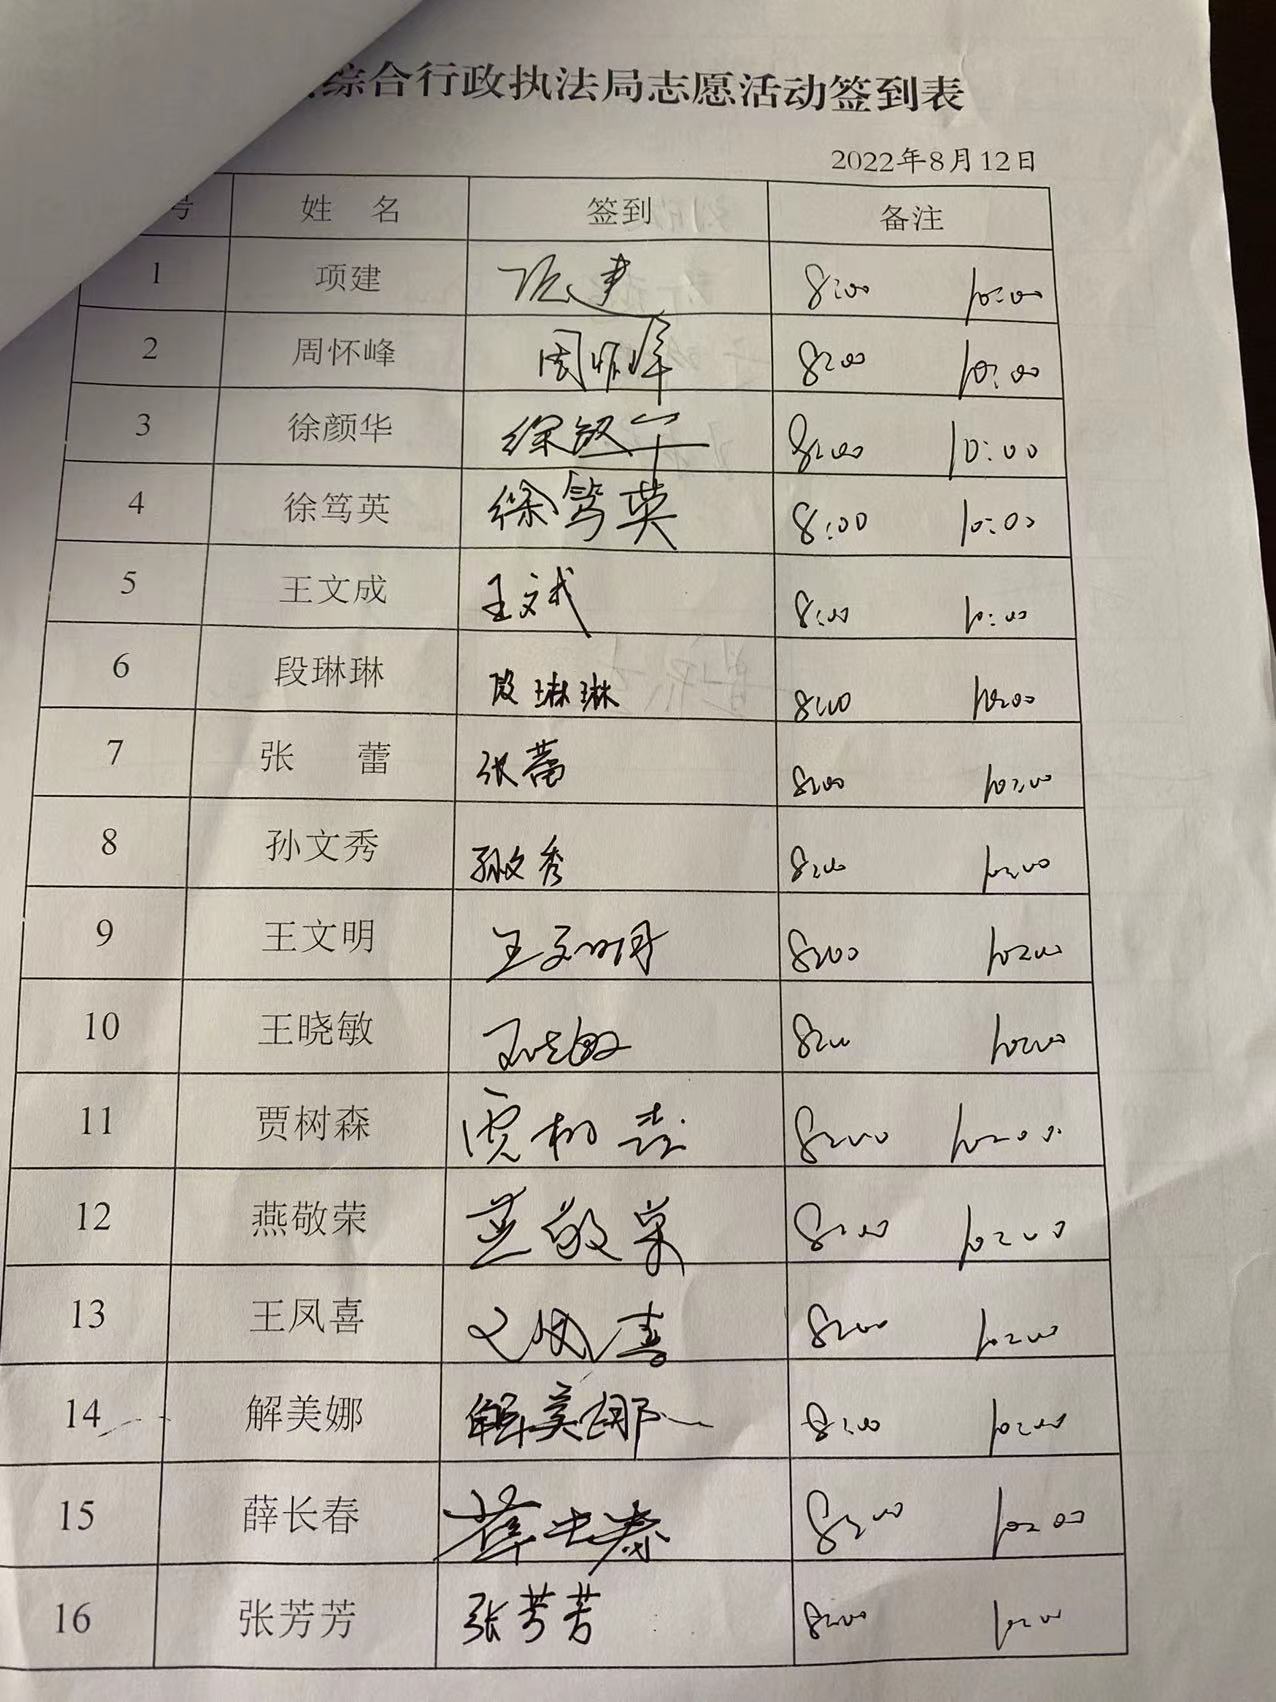 综合行政执法局志愿活动签到表
2022年8月12日
号 姓 名 签到 备注
1 项建 项建 8:00 10:00
2 周怀峰 周怀峰 8:00 10:00
3 徐颜华 徐颜华 8:00 10:00
4 徐笃英 徐笃英 8:00 10:00
5 王文成 王文成 8:00 10:00
6 段琳琳 段琳琳 8:00 10:00
7 张 蕾 张蕾 8:00 10:00
8 孙文秀 孙文秀 8:00 10:00
9 王文明 王文明 8:00 10:00
10 王晓敏 王晓敏 8:00 10:00
11 贾树森 贾树森 8:00 10:00
12 燕敬荣 燕敬荣 8:00 10:00
13 王凤喜 王凤喜 8:00 10:00
14 解美娜 解美娜 8:00 10:00
15 薛长春 薛长春 8:00 10:00
16 张芳芳 张芳芳 8:00 10:00